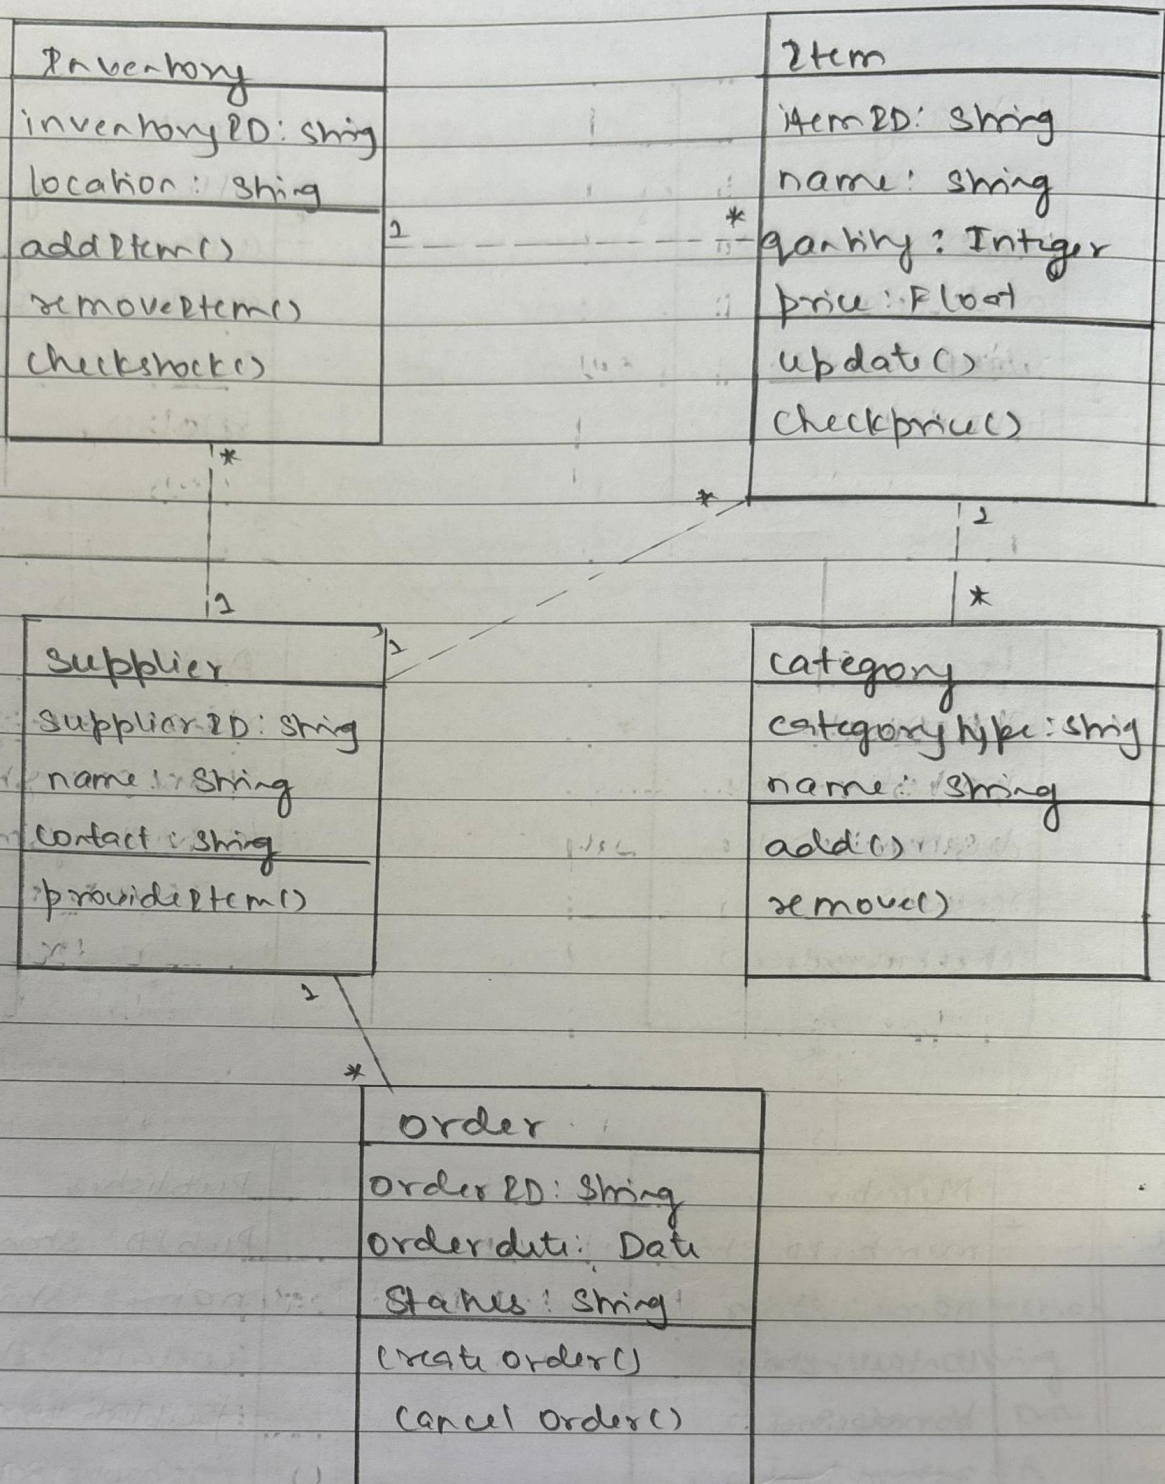 Inventory
inventoryID: String
location: String
addItem()
removeItem()
checkstock()
1
*
Item
itemID: String
name: String
qantity: Intiger
price: Float
update()
checkprice()
*
1
*
1
1
*
Supplier
SupplierID: String
name: String
contact: String
provideItem()
category
categorytype: String
name: String
add()
remove()
1
*
order
OrderID: String
Orderdate: Date
Status: String
Create order()
Cancel order()